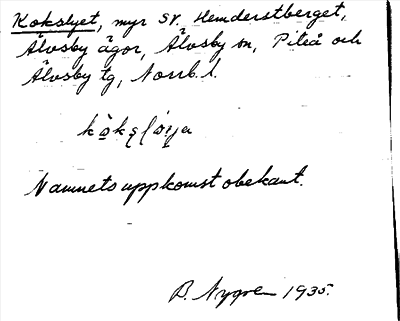 Kokslyet, myr SV. Hemderstberget,
Älvsby ägor, Älvsby sn, Piteå och
Älvsby tg, Norrb. l.
Namnets uppkomst obekant.
B. Nygren 1935.